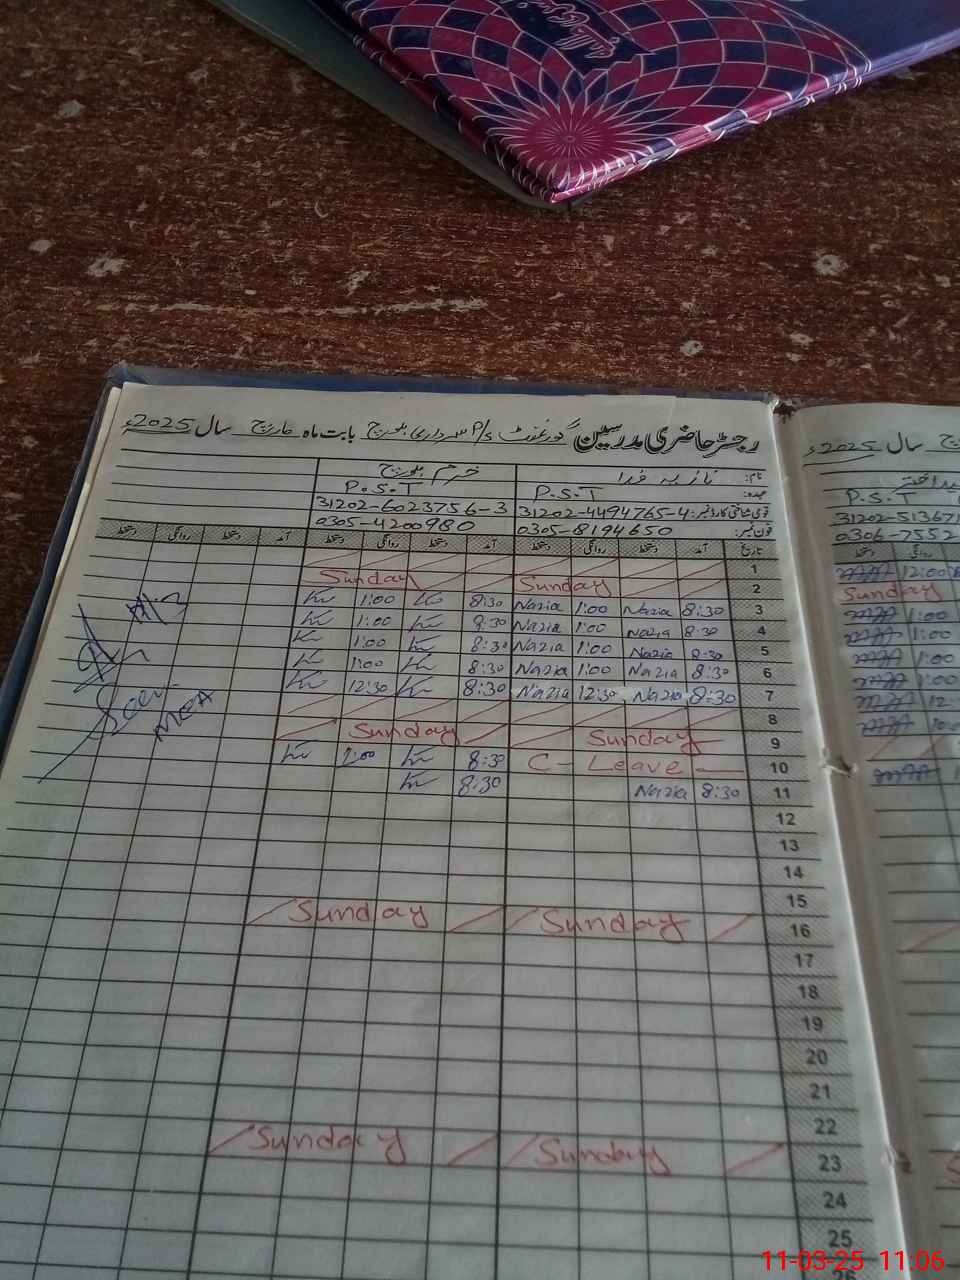 رجسٹر حاضری مدرسین گورنمنٹ P/S سرداری بلوچ بابت ماہ مارچ سال 2025ء
نام: نازیہ فدا خرم بلوچ
عہدہ: P.S.T P.S.T
قومی شناختی کارڈ نمبر: 31202-4494765-4 31202-6023756-3
فون نمبر: 0305-8194650 0305-4200980
تاریخ آمد دستخط روانگی دستخط آمد دستخط روانگی دستخط آمد دستخط روانگی دستخط
1
2 Sunday Sunday
3 8:30 Nazia 1:00 Nazia 8:30 1:00
4 8:30 Nazia 1:00 Nazia 8:30 1:00
5 8:30 Nazia 1:00 Nazia 8:30 1:00
6 8:30 Nazia 1:00 Nazia 8:30 1:00
7 8:30 Nazia 12:30 Nazia 8:30 12:30
8
9 Sunday Sunday
10 C - Leave 8:30 1:00
11 8:30 Nazia 8:30
12
13
14
15
16 Sunday Sunday
17
18
19
20
21
22
23 Sunday Sunday
24
25
26
MEA
سال 2025ء
اختر
P.S.T
31202-51367
0306-7552
دستخط روانگی
12:00
Sunday
1:00
1:00
1:00
1:00
11-03-25 11:06